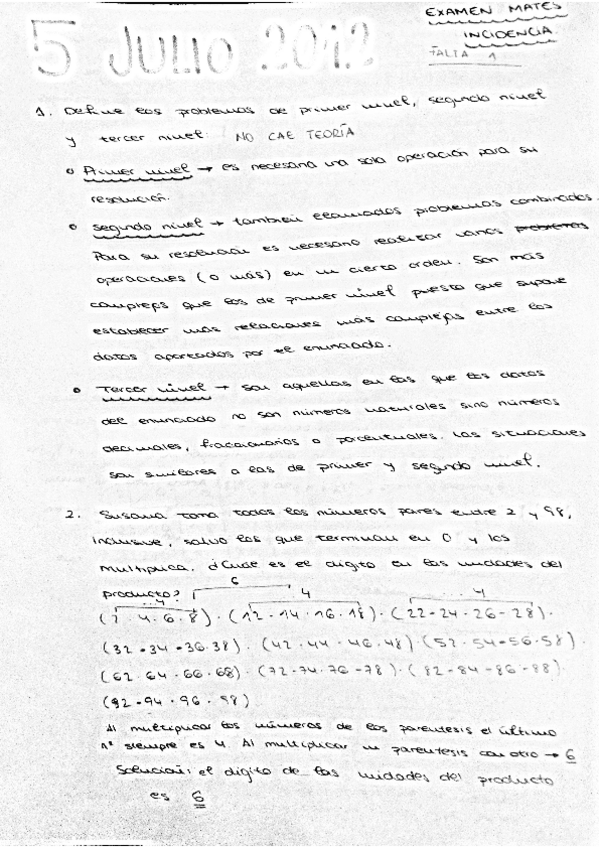 EXAMEN MATES
INCIDENCIA.
5 JULIO 2012
FALTA 1
1. Define los problemas de primer nivel, segundo nivel
y tercer nivel. NO CAE TEORÍA
Primer nivel → es necesaria una sola operación para su
resolución.
segundo nivel → también llamados problemas combinados.
Para su resolución es necesario realizar varios problemas
operaciones (o más) en un cierto orden. Son más
complejos que los de primer nivel puesto que supone
establecer más relaciones más complejas entre los
datos aportados por el enunciado.
Tercer nivel → son aquellas en las que los datos
del enunciado no son números naturales sino números
decimales, fraccionarios o porcentuales. Las situaciones
son similares a las de primer y segundo nivel.
2. Susana toma todos los números pares entre 2 y 98,
inclusive, salvo los que terminan en 0 y los
multiplica. ¿Cuál es el dígito en las unidades del
producto?
6
...4 4 ...4
(2·4·6·8)·(12·14·16·18)·(22·24·26·28)·
(32·34·36·38)·(42·44·46·48)·(52·54·56·58)·
(62·64·66·68)·(72·74·76·78)·(82·84·86·88)·
(92·94·96·98)
Al multiplicar los números de los paréntesis el último
nº siempre es 4. Al multiplicar un paréntesis con otro → 6
Solución: el dígito de las unidades del producto
es 6